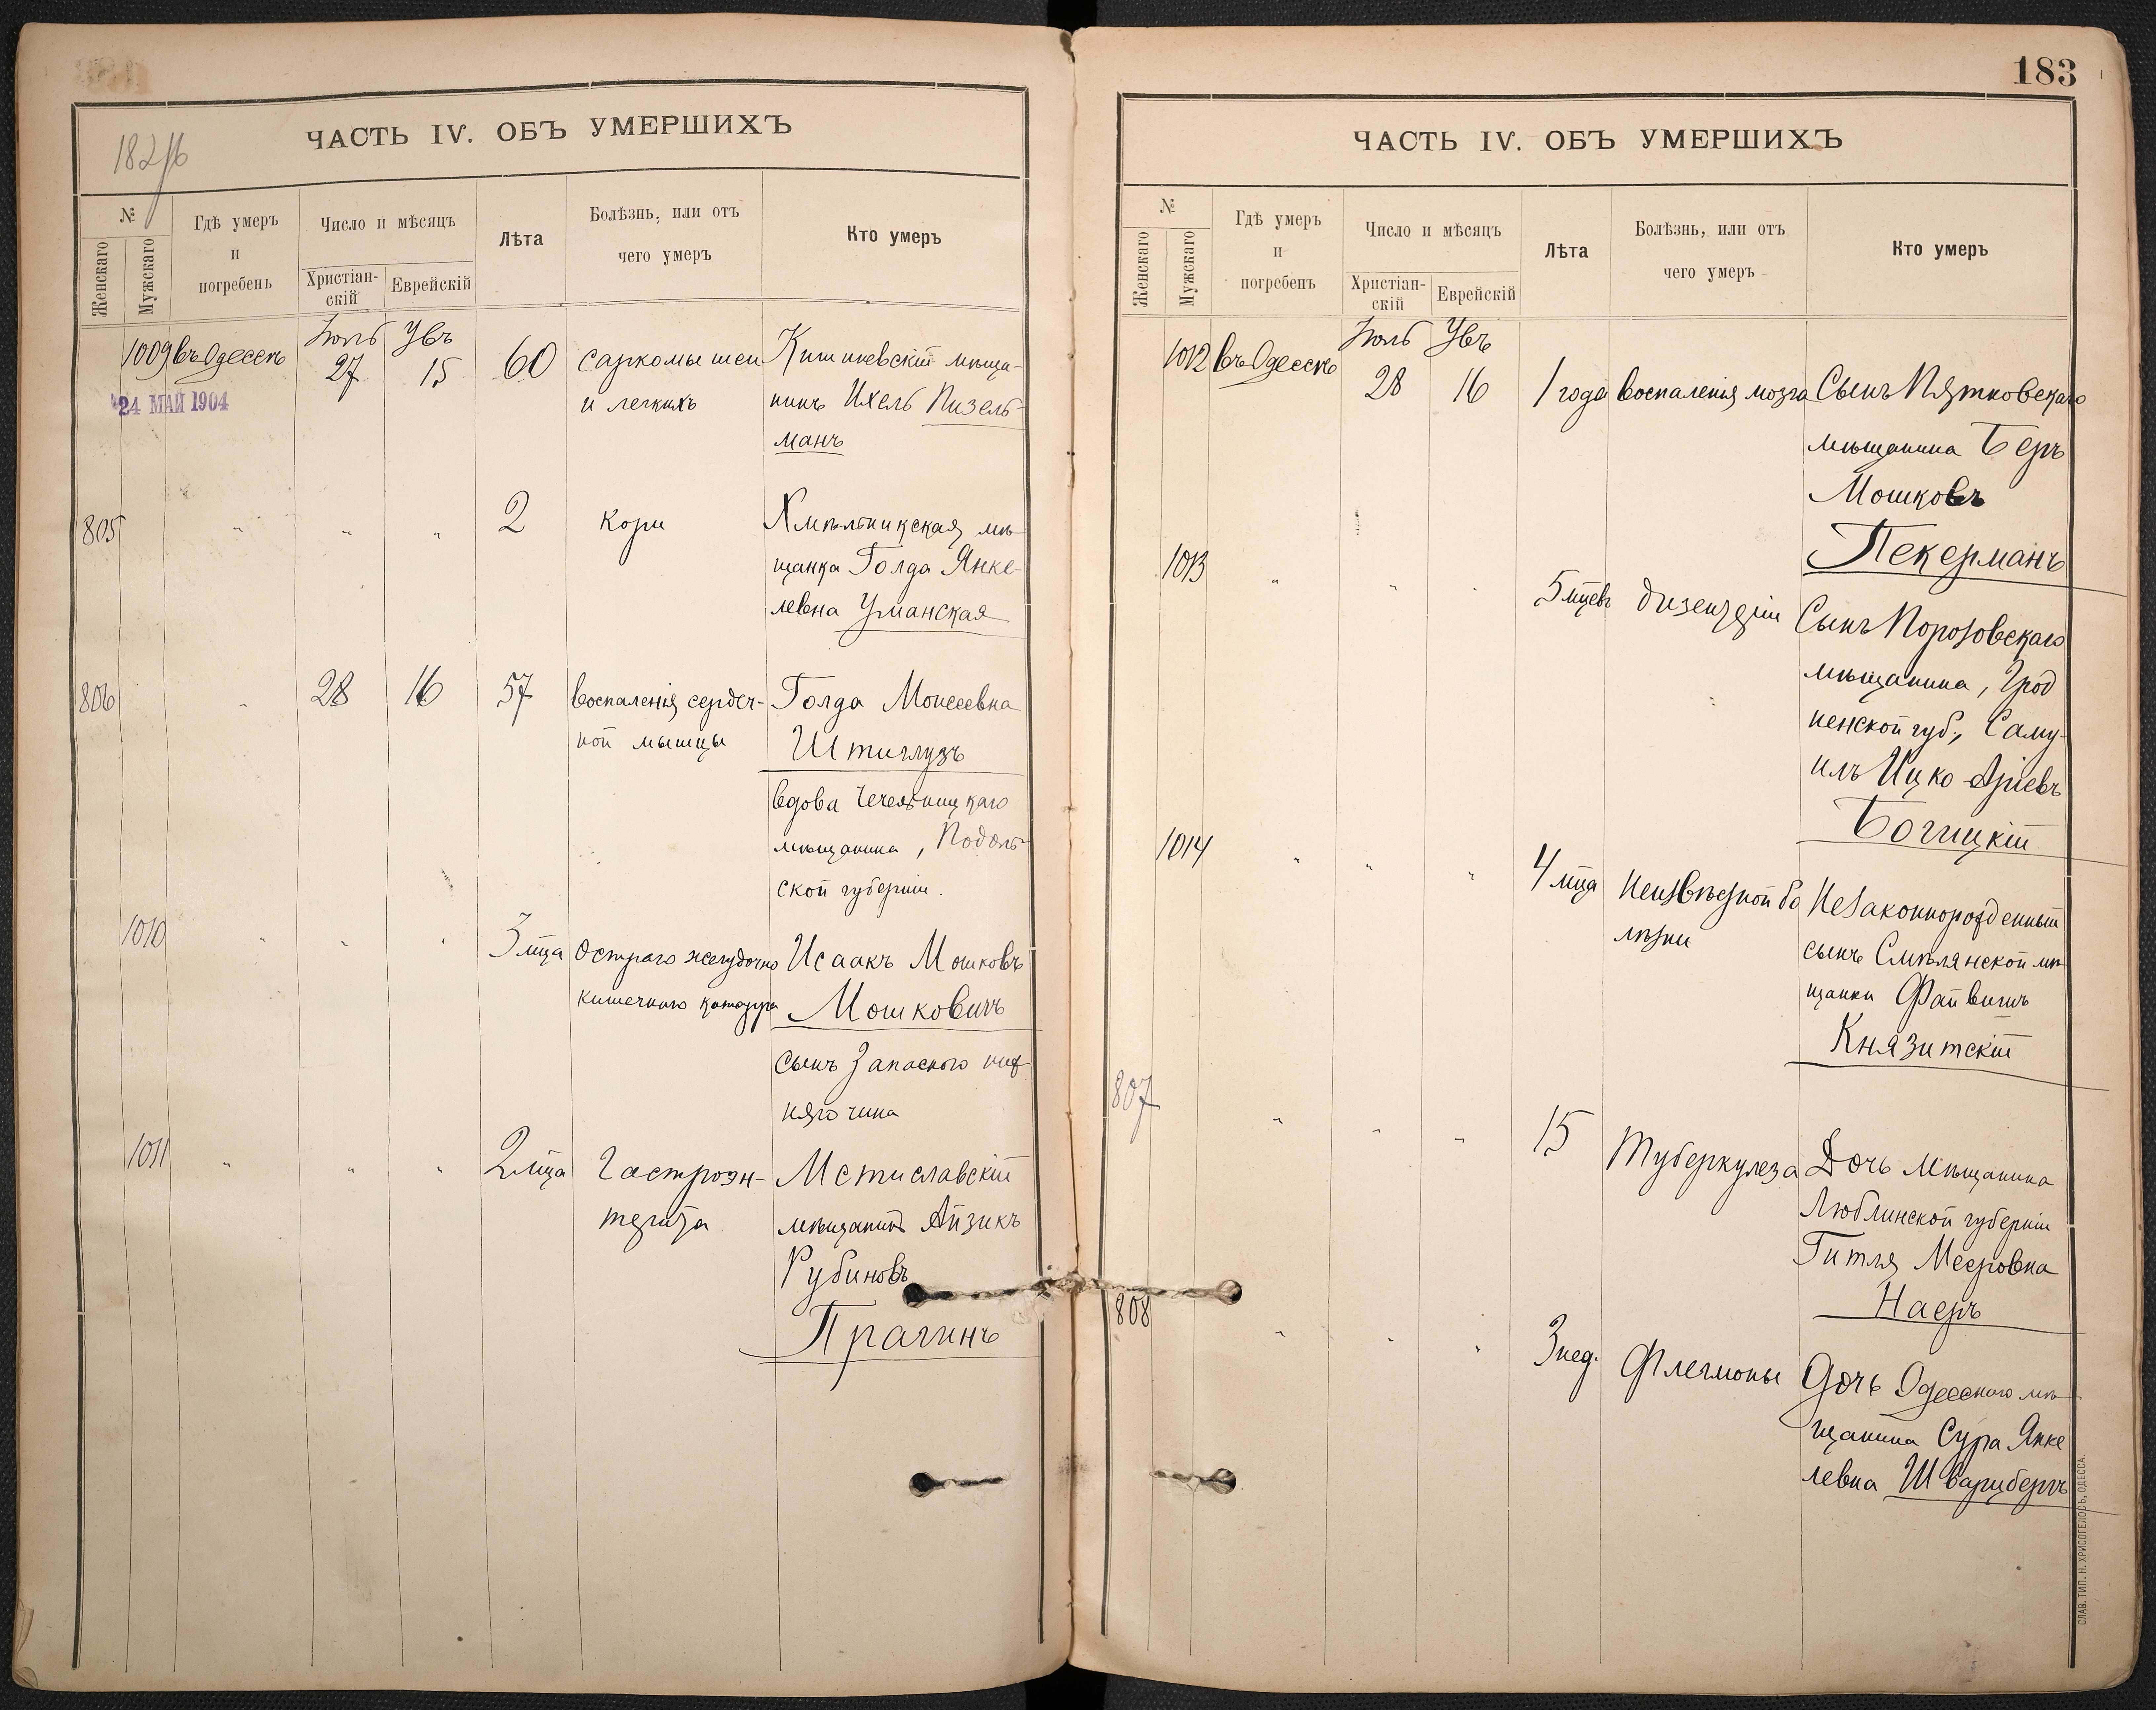 182 об
ЧАСТЬ IV. ОБЪ УМЕРШИХЪ
№
Женскаго
Мужскаго
Гдѣ умеръ
и
погребенъ
Число и мѣсяцъ
Христіан-
скій
Еврейскій
Лѣта
Болѣзнь, или отъ
чего умеръ
Кто умеръ
Іюль Увъ
1009 въ Одессѣ 27 15 60 саркомы шеи Кишиневскій мѣща-
24 МАЙ 1904
и легкихъ нинъ Ихель Пизель-
манъ
805 " " " 2 Кори Хмѣльникская мѣ-
щанка Голда Янке-
левна Уманская
806 " 28 16 57 воспаленія сердеч- Голда Моисеевна
ной мышцы Штиглузъ
вдова Чечельницкаго
мѣщанина, Подоль-
ской губерніи.
1010 " " " 3 м-ца Остраго желудочно Исаакъ Мошковъ
кишечнаго катарра Мошковичъ
сынъ Запаснаго ниж-
няго чина
1011 " " " 2 м-ца Гастроэн- Мстиславскій
терита мѣщанинъ Айзикъ
Рубиновъ
Прагинъ
183
ЧАСТЬ IV. ОБЪ УМЕРШИХЪ
№
Женскаго
Мужскаго
Гдѣ умеръ
и
погребенъ
Число и мѣсяцъ
Христіан-
скій
Еврейскій
Лѣта
Болѣзнь, или отъ
чего умеръ
Кто умеръ
Іюль Увъ
1012 въ Одессѣ 28 16 1 года воспаленія мозга Сынъ Пятковскаго
мѣщанина Беръ
Мошковъ
Пекерманъ
1013 " " " 5 м-цевъ дизентеріи Сынъ Порозовскаго
мѣщанина, Грод
ненской губ., Саму-
илъ Ицко-Аріевъ
Богицкій
1014 " " " 4 м-ца Неизвѣстной бо Незаконнорожденный
лѣзни сынъ Смѣлянской мѣ-
щанки Файвишъ
Князитскій
807 " " " 15 Туберкулеза Дочь Мѣщанина
Люблинской губерніи
Гитля Мееровна
Наеръ
808 " " " 3 нед. Флегмоны Дочь Одесскаго мѣ-
щанина Сура Янке
левна Шварцбергъ
СЛАВ. ТИП. Н. ХРИСОГЕЛОСЪ, ОДЕССА.